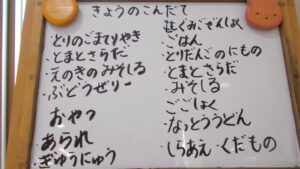 きょうのこんだて
・とりのごまてりやき
・とまとさらだ
・えのきのみそしる
・ぶどうぜりー
おやつ
・あられ
・ぎゅうにゅう
ごはん
・とりだんごのにもの
・とまとさらだ
・みそしる
ごごしょく
・なっとううどん
・しらあえ・くだもの